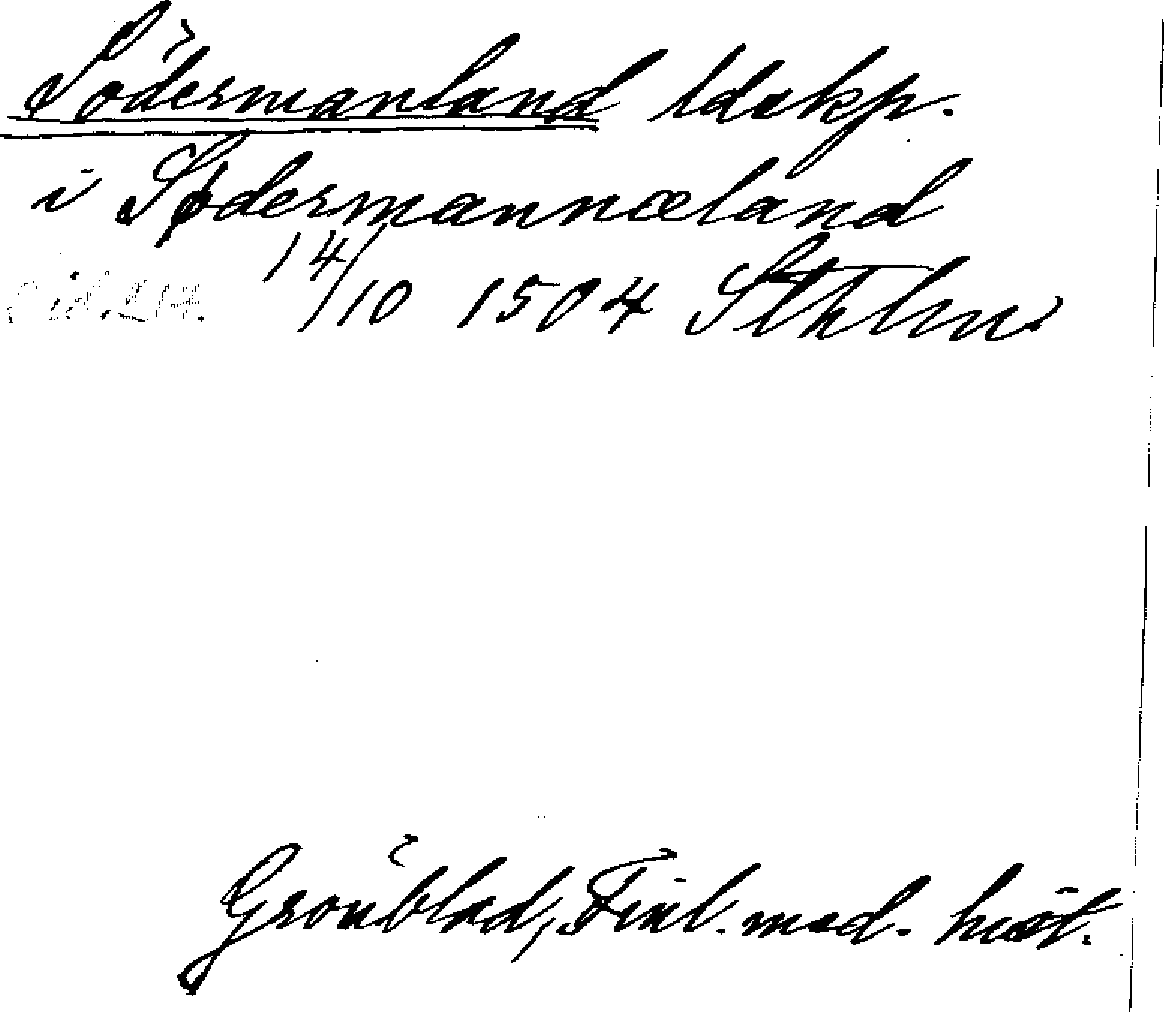 Södermanland ldskp.
i Sødermannœland
14/10 1504 Sthlm
Grönblad, Finl. med. hist.